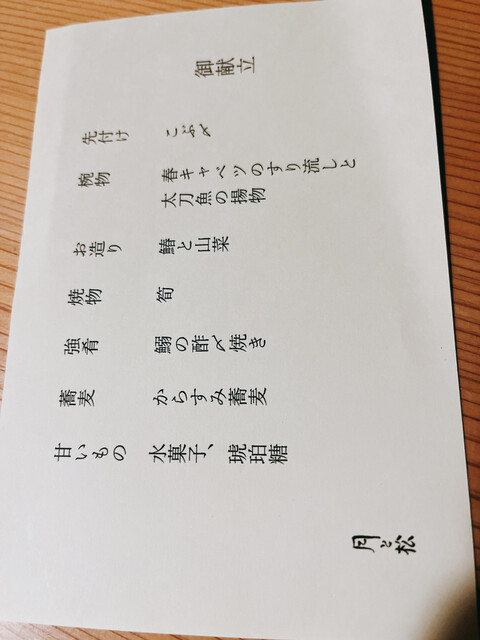 御献立
先付け　こぶ〆
椀物　春キャベツのすり流しと
太刀魚の揚物
お造り　鰆と山菜
焼物　筍
強肴　鰯の酢〆焼き
蕎麦　からすみ蕎麦
甘いもの　水菓子、琥珀糖
月と松